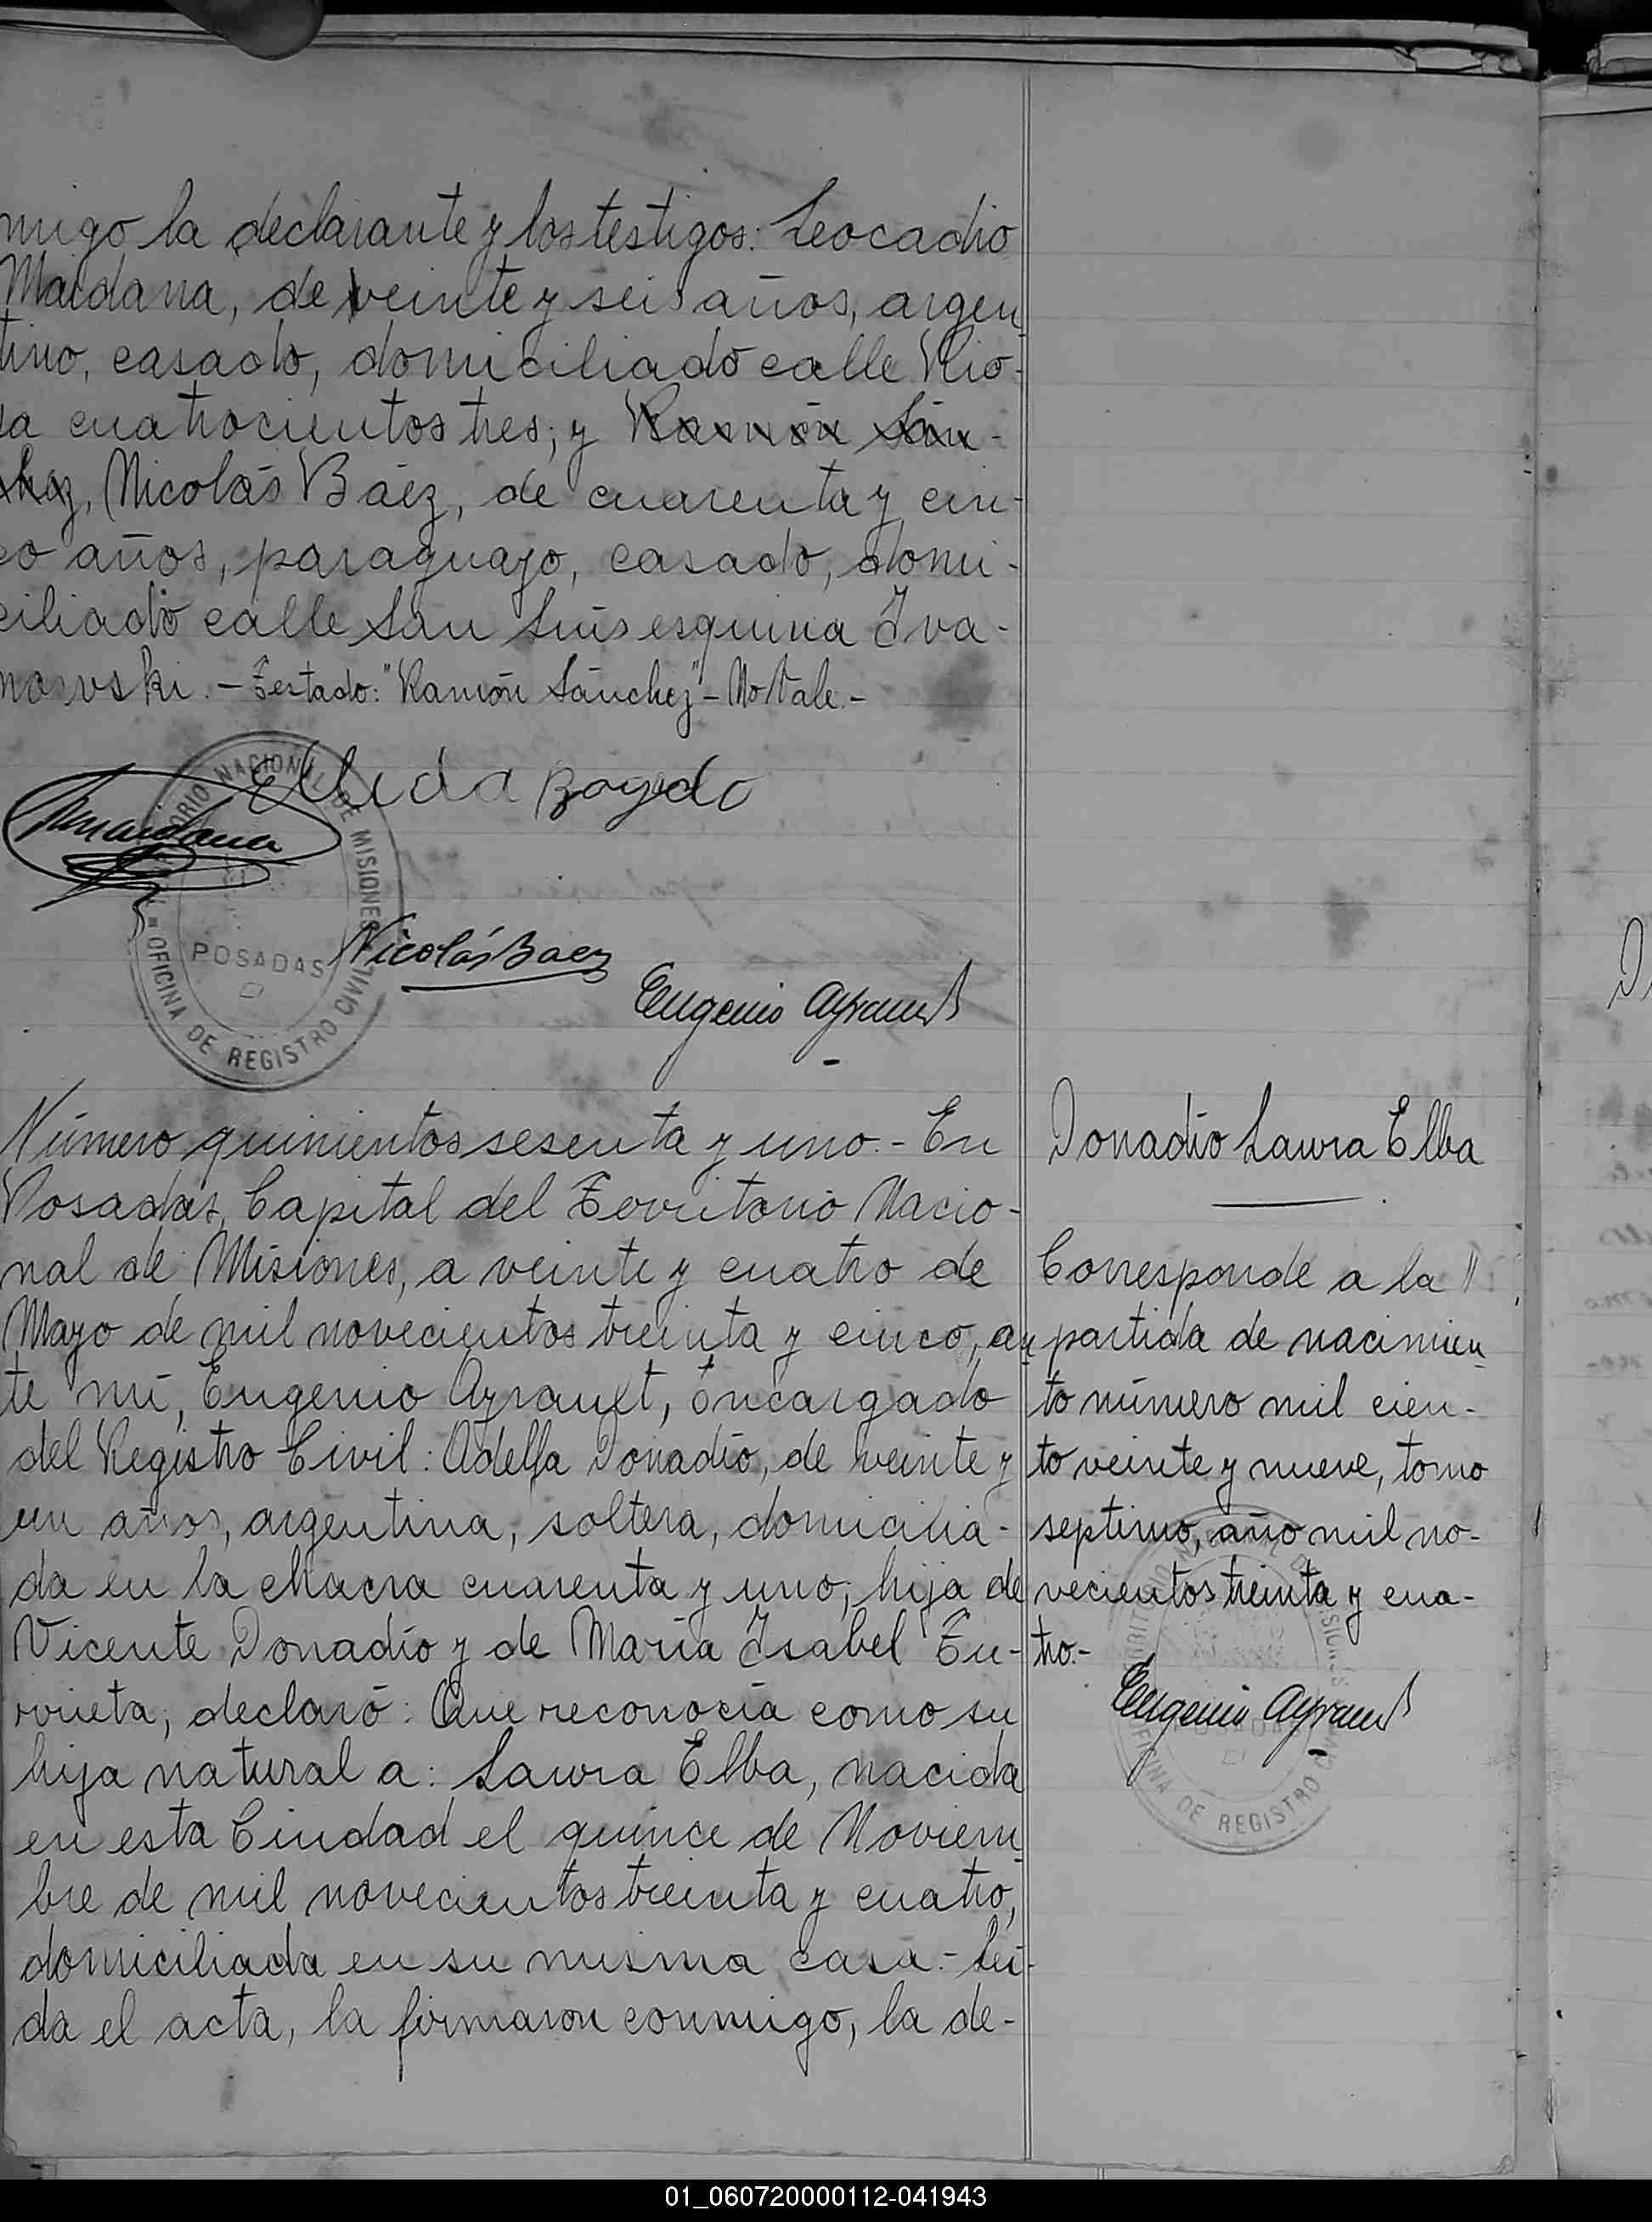 migo la declarante y los testigos: Leocadio
Maidana, de veinte y seis años, argen
tino, casado, domiciliado calle Rio-
ja cuatrocientos tres; y Ramón Sán-
chez, Nicolás Báez, de cuarenta y cin-
co años, paraguayo, casado, domi-
ciliado calle San Luis esquina Iva-
nowski.- Testado: "Ramón Sánchez"- No Vale.-
TERRITORIO NACIONAL DE MISIONES
OFICINA DE REGISTRO CIVIL
POSADAS
Nicolás Baez
Eugenio Ayrault
Número quinientos sesenta y uno.- En
Posadas, Capital del Territorio Nacio-
nal de Misiones, a veinte y cuatro de
Mayo de mil novecientos treinta y cinco, an
te mí, Eugenio Ayrault, Encargado
del Registro Civil: Adella Donadío, de veinte y
un años, argentina, soltera, domicilia-
da en la chacra cuarenta y uno; hija de
Vicente Donadío y de María Isabel Tu-
rrieta; declaró: Que reconocía como su
hija natural a: Laura Elba, nacida
en esta Ciudad el quince de Noviem
bre de mil novecientos treinta y cuatro,
domiciliada en su misma casa.- Leí-
da el acta, la firmaron conmigo, la de-
Donadío Laura Elba
Corresponde a la
partida de nacimien
to número mil cien-
to veinte y nueve, tomo
septimo, año mil no-
vecientos treinta y cua-
tro.-
Eugenio Ayrault
OFICINA DE REGISTRO CIVIL
01_060720000112-041943